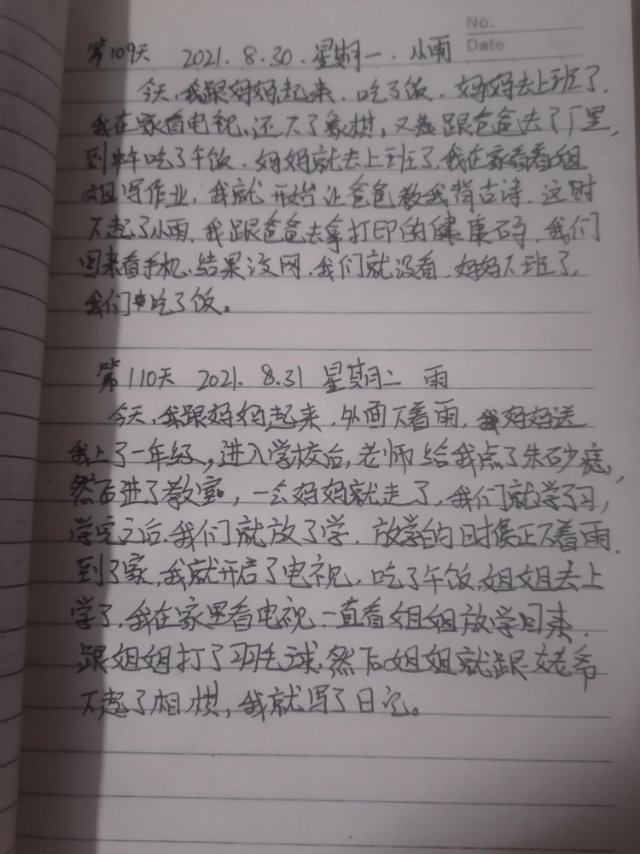 No.
Date
第109天 2021.8.30.星期一.小雨
今天,我跟妈妈起来,吃了饭,妈妈去上班了,
我在家看电视,还下了象棋,又跟爸爸去了厂里,
到吃了午饭,妈妈就去上班了,我在家看着姐
姐写作业,我就开始让爸爸教我背古诗,这时
下起了小雨,我跟爸爸去拿打印的健康码,我们
回来看手机,结果没网,我们就没看,妈妈下班了,
我们吃了饭。
第110天 2021.8.31 星期二 雨
今天,我跟妈妈起来,外面下着雨,妈妈送
我上了一年级,进入学校后,老师给我点了朱砂痣,
然后进了教室,一会妈妈就走了,我们就学习,
学完之后,我们就放了学,放学的时候正下着雨,
到了家,我就开启了电视,吃了午饭,姐姐去上
学了,我在家里看电视一直看姐姐放学回来,
跟姐姐打了羽毛球,然后姐姐就跟老爷
下起了相棋,我就写了日记。